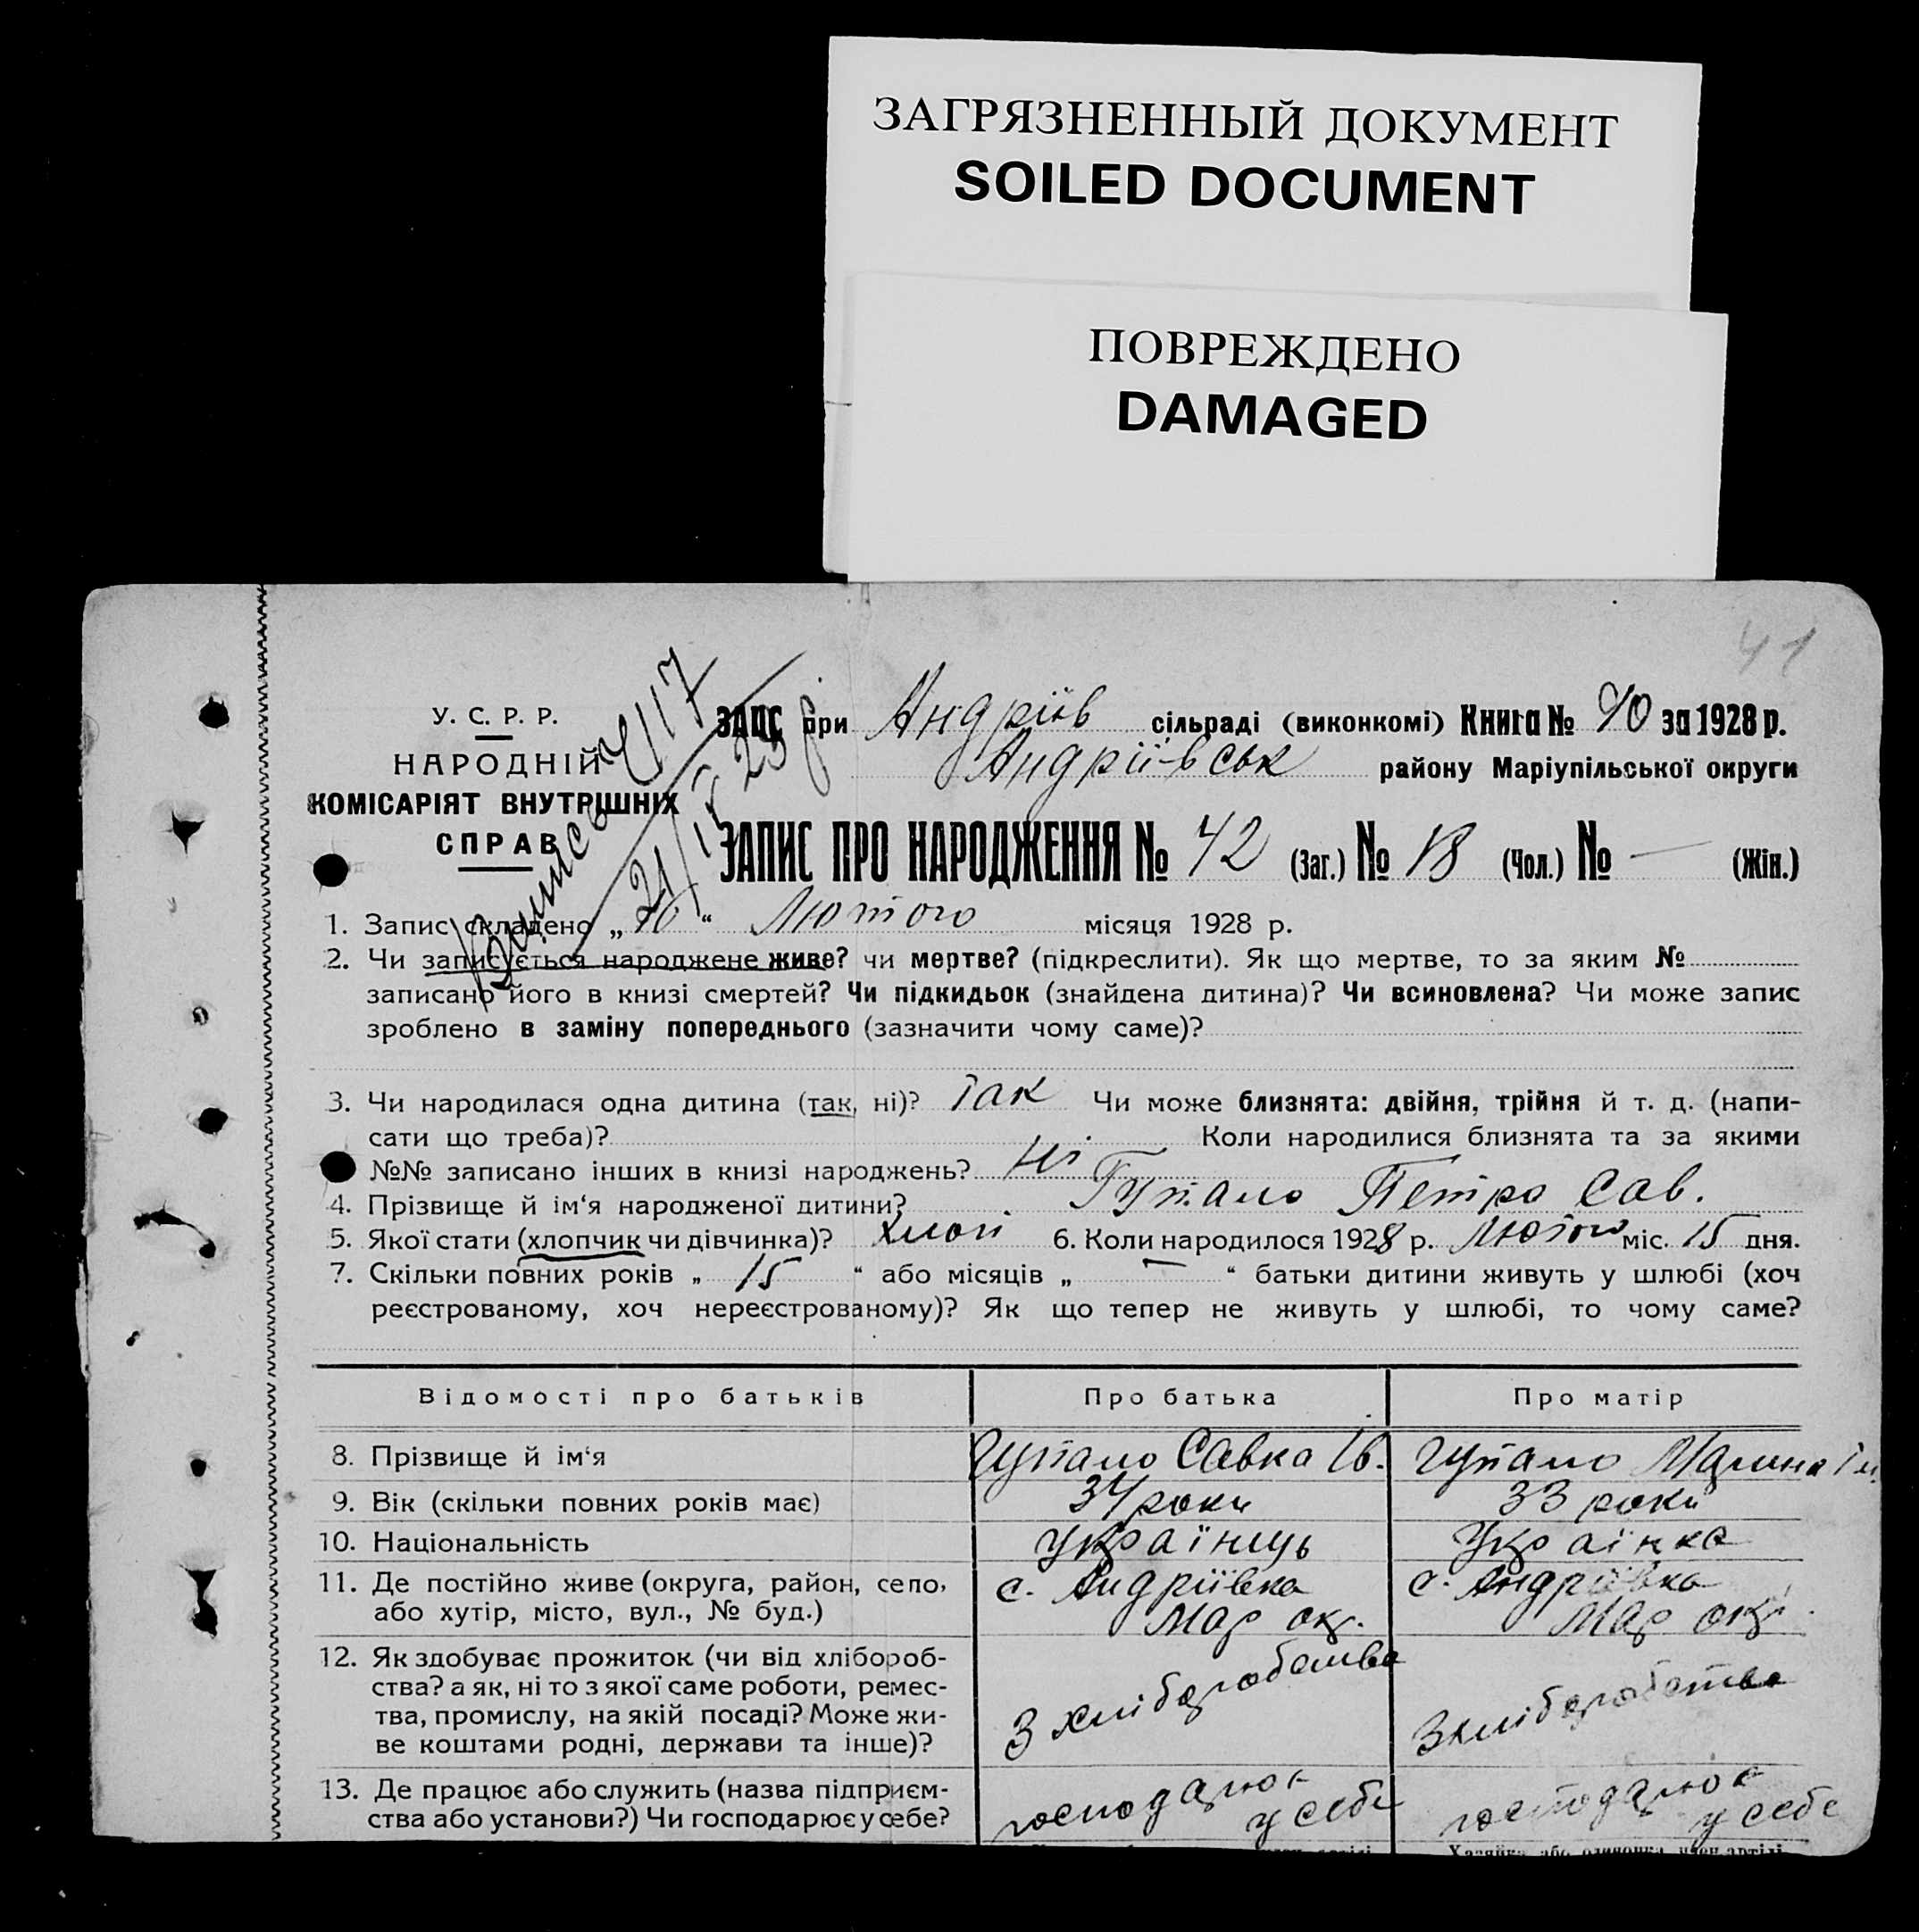 ЗАГРЯЗНЕННЫЙ ДОКУМЕНТ
SOILED DOCUMENT
ПОВРЕЖДЕНО
DAMAGED
41
У. С. Р. Р.
НАРОДНІЙ
КОМІСАРІЯТ ВНУТРІШНІХ
СПРАВ
ЗАПС при Андріїв сільраді (виконкомі) Книга № 70 за 1928 р.
Андріївськ району Маріупільської округи
ЗАПИС ПРО НАРОДЖЕННЯ № 42 (Заг.) № 18 (Чол.) № — (Жін.)
1. Запис складено „ 16 “ Лютого місяця 1928 р.
2. Чи записується народжене живе? чи мертве? (підкреслити). Як що мертве, то за яким №
записано його в книзі смертей? Чи підкидьок (знайдена дитина)? Чи всиновлена? Чи може запис
зроблено в заміну попереднього (зазначити чому саме)?
3. Чи народилася одна дитина (так, ні)? Так Чи може близнята: двійня, трійня й т. д. (напи-
сати що треба)? Коли народилися близнята та за якими
№№ записано інших в книзі народжень? Ні
4. Прізвище й ім‘я народженої дитини? Гупало Петро Сав.
5. Якої стати (хлопчик чи дівчинка)? Хлоп 6. Коли народилося 1928 р. Лютого міс. 15 дня.
7. Скільки повних років „ 15 “ або місяців „ — “ батьки дитини живуть у шлюбі (хоч
реєстрованому, хоч нереєстрованому)? Як що тепер не живуть у шлюбі, то чому саме?
Відомості про батьків Про батька Про матір
8. Прізвище й ім‘я Гупало Савка Ів. Гупало Марина
9. Вік (скільки повних років має) 34 роки 33 роки
10. Національність Українець Українка
11. Де постійно живе (округа, район, село, с. Андріївка с. Андріївка
або хутір, місто, вул., № буд.) Мар окр. Мар окр.
12. Як здобуває прожиток (чи від хлібороб-
ства? а як, ні то з якої саме роботи, ремес-
тва, промислу, на якій посаді? Може жи-
ве коштами родні, держави та інше)?
З хліборобства З хліборобства
13. Де працює або служить (назва підприєм-
ства або установи?) Чи господарює у себе?
господарює у себе господарює у себе
Хазяйка або одиночка член артілі